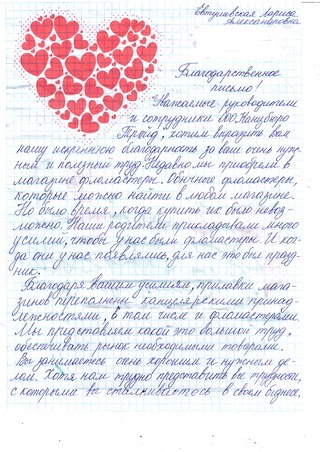 Евтушевская Лариса
Александровна
Благодарственное
письмо!
Уважаемые руководители
и сотрудники ООО Канцбюро
Трейд, хотим выразить вам
нашу искреннюю благодарность за ваш очень нуж-
ный и полезный труд. Недавно мы приобрели в
магазине фломастеры. Обычные фломастеры,
которые можно найти в любом магазине.
Но было время, когда купить их было невоз-
можно. Наши родители прикладывали много
усилий, чтобы у нас были фломастеры. И ког-
да они у нас появлялись, для нас это был празд-
ник.
Благодаря вашим усилиям, прилавки мага-
зинов переполнены канцелярскими принад-
лежностями, в том числе и фломастерами.
Мы представляем какой это большой труд,
обеспечивать рынок необходимыми товарами.
Вы занимаетесь очень хорошим и нужным де-
лом. Хотя нам трудно представить все трудности,
с которыми вы сталкиваетесь в своем бизнесе,